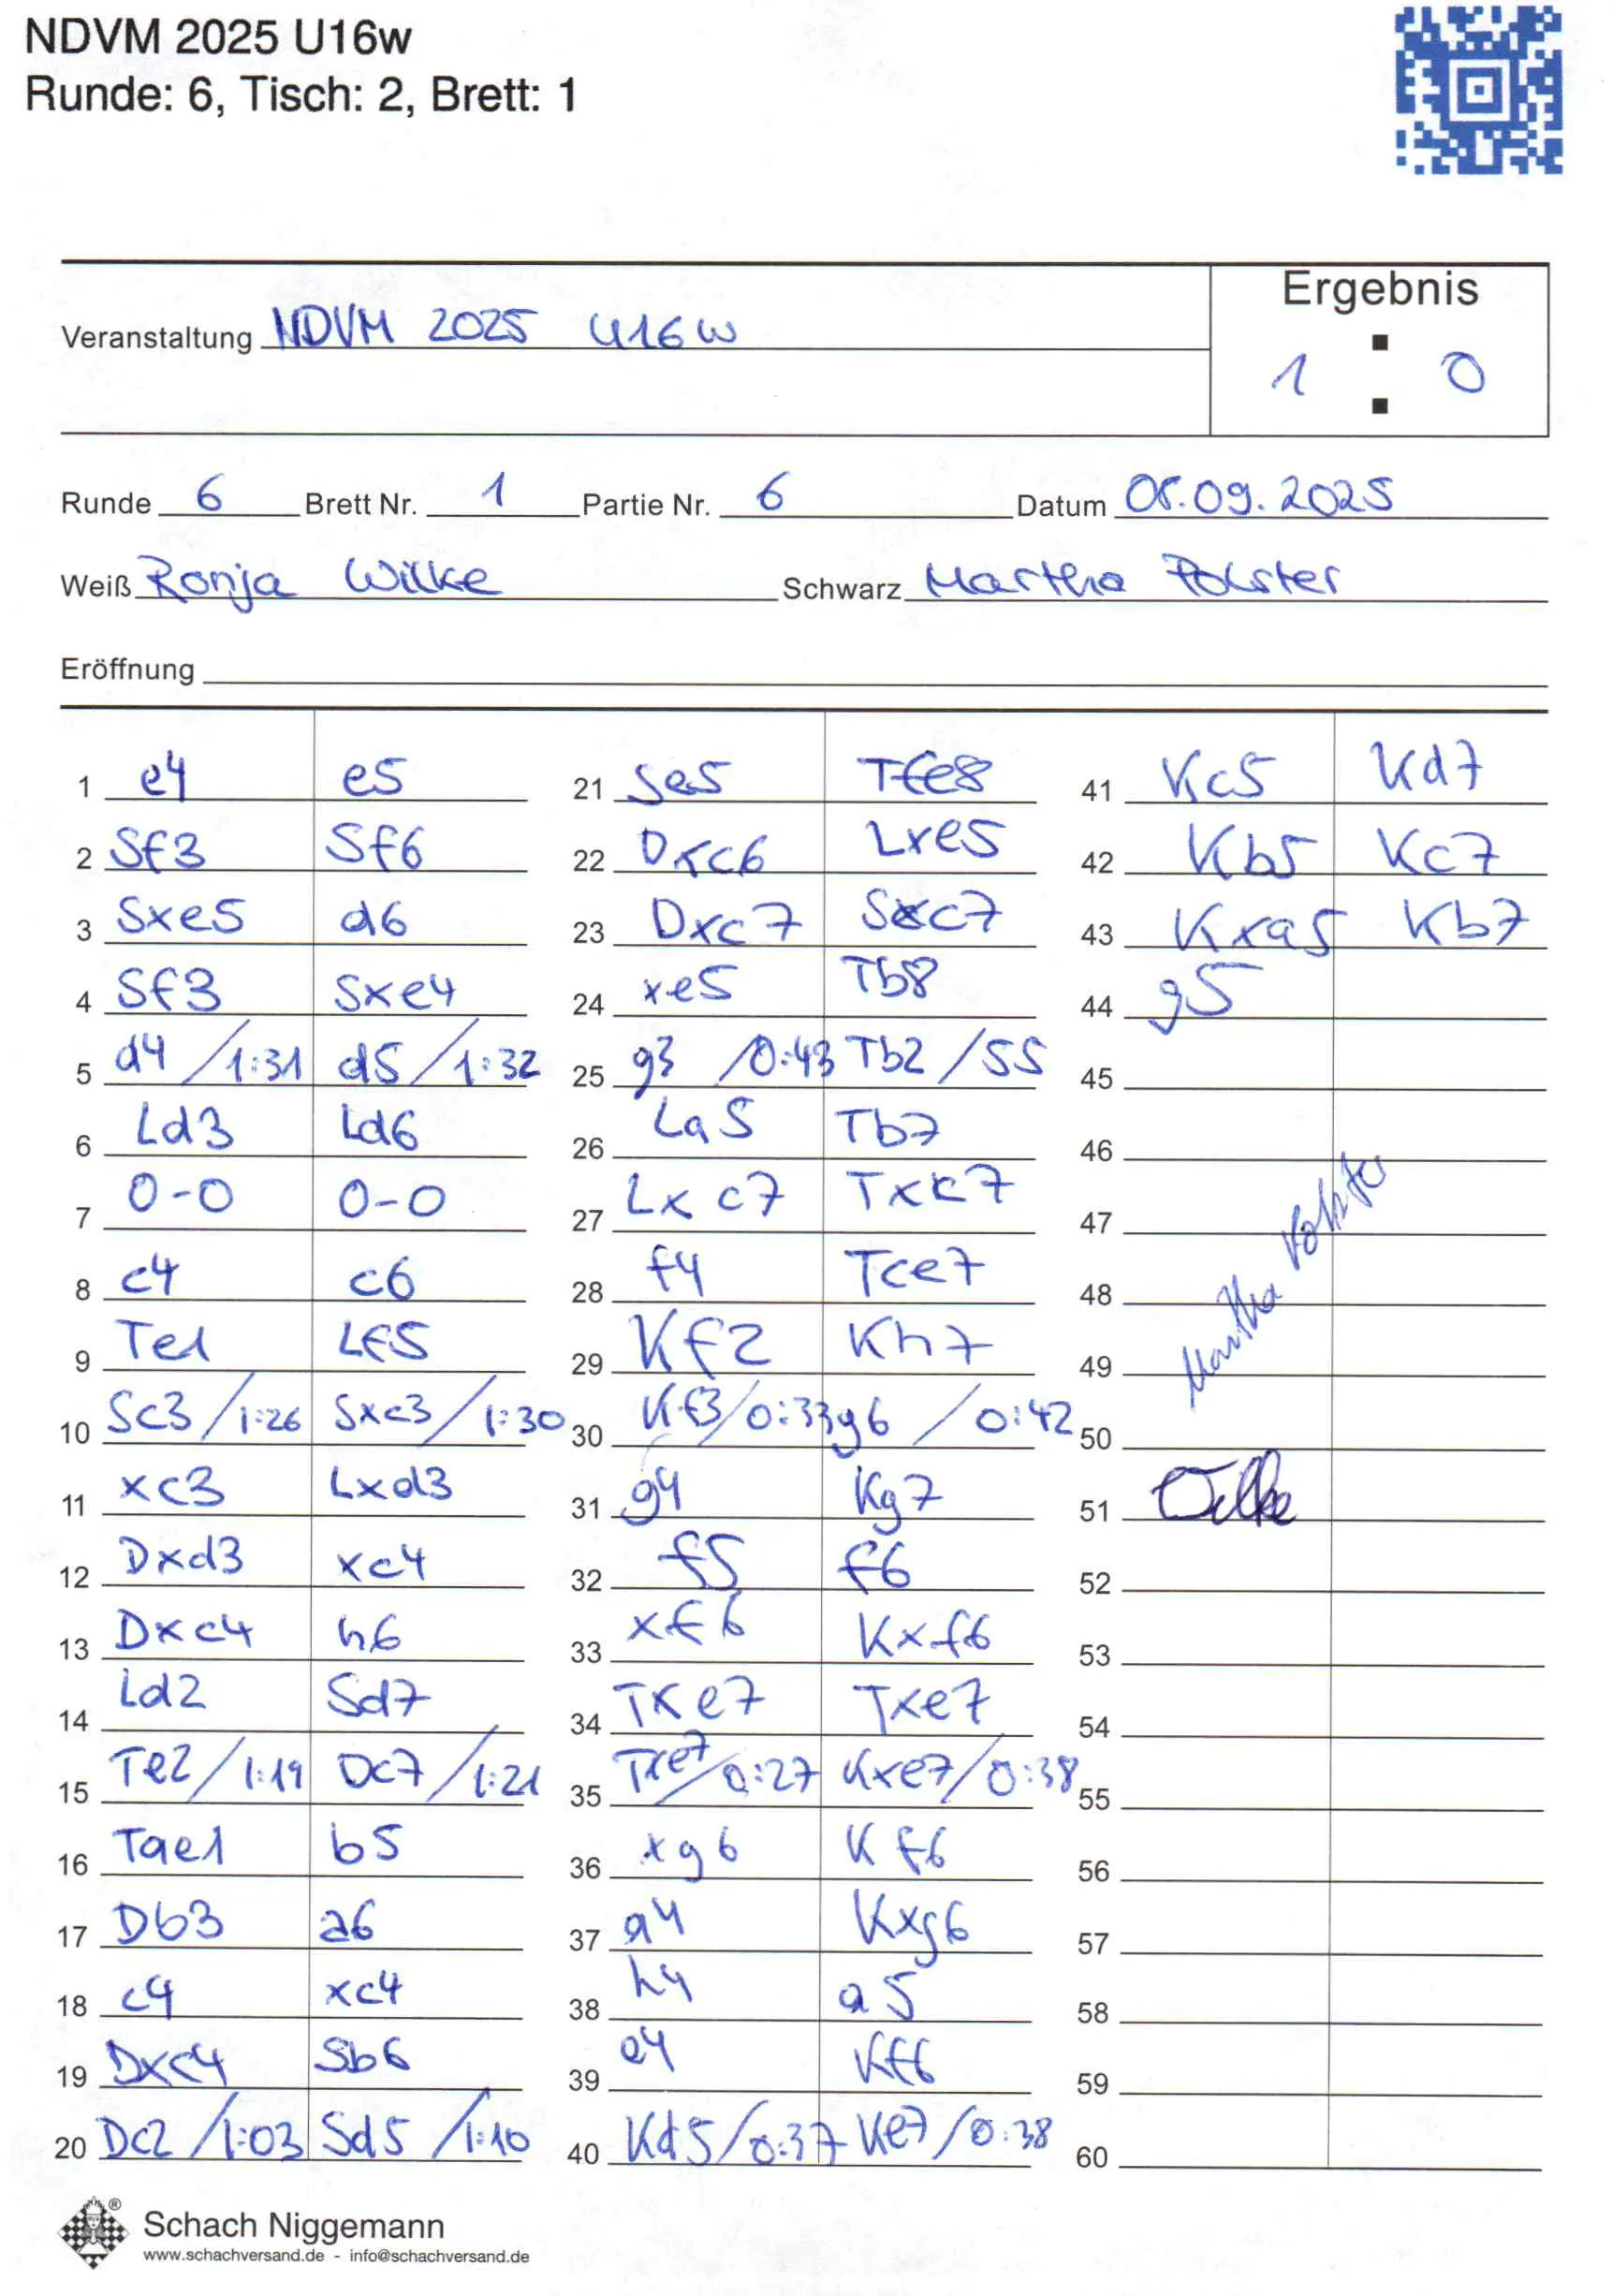 NDVM 2025 U16w
Runde: 6, Tisch: 2, Brett: 1
Ergebnis
Veranstaltung NDVM 2025 U16w
1 : 0
Runde 6 Brett Nr. 1 Partie Nr. 6 Datum 08.09.2025
Weiß Ronja Wilke Schwarz Martha Polster
Eröffnung
1 e4 e5
2 Sf3 Sf6
3 Sxe5 d6
4 Sf3 Sxe4
5 d4 /1:31 d5 /1:32
6 Ld3 Ld6
7 0-0 0-0
8 c4 c6
9 Te1 Lf5
10 Sc3 /1:26 Sxc3 /1:30
11 xc3 Lxd3
12 Dxd3 xc4
13 Dxc4 h6
14 Ld2 Sd7
15 Te2 /1:19 Dc7 /1:21
16 Tae1 b5
17 Db3 a6
18 c4 xc4
19 Dxc4 Sb6
20 Dc2 /1:03 Sd5 /1:10
21 Se5 Tfe8
22 Dxc6 Lxe5
23 Dxc7 Sxc7
24 xe5 Tb8
25 g3 /0:43 Tb2 /55
26 La5 Tb7
27 Lxc7 Txc7
28 f4 Tce7
29 Kf2 Kh7
30 Kf3 /0:33 g6 /0:42
31 g4 Kg7
32 f5 f6
33 xf6 Kxf6
34 Txe7 Txe7
35 Txe7 /0:27 Kxe7 /0:38
36 xg6 Kf6
37 a4 Kxg6
38 h4 a5
39 e4 Kf6
40 Kd5 /0:37 Ke7 /0:38
41 Kc5 Kd7
42 Kb5 Kc7
43 Kxa5 Kb7
44 g5
45
46
47
48
49
Martha Polster
50
51 Wilke
52
53
54
55
56
57
58
59
60
Schach Niggemann
www.schachversand.de - info@schachversand.de